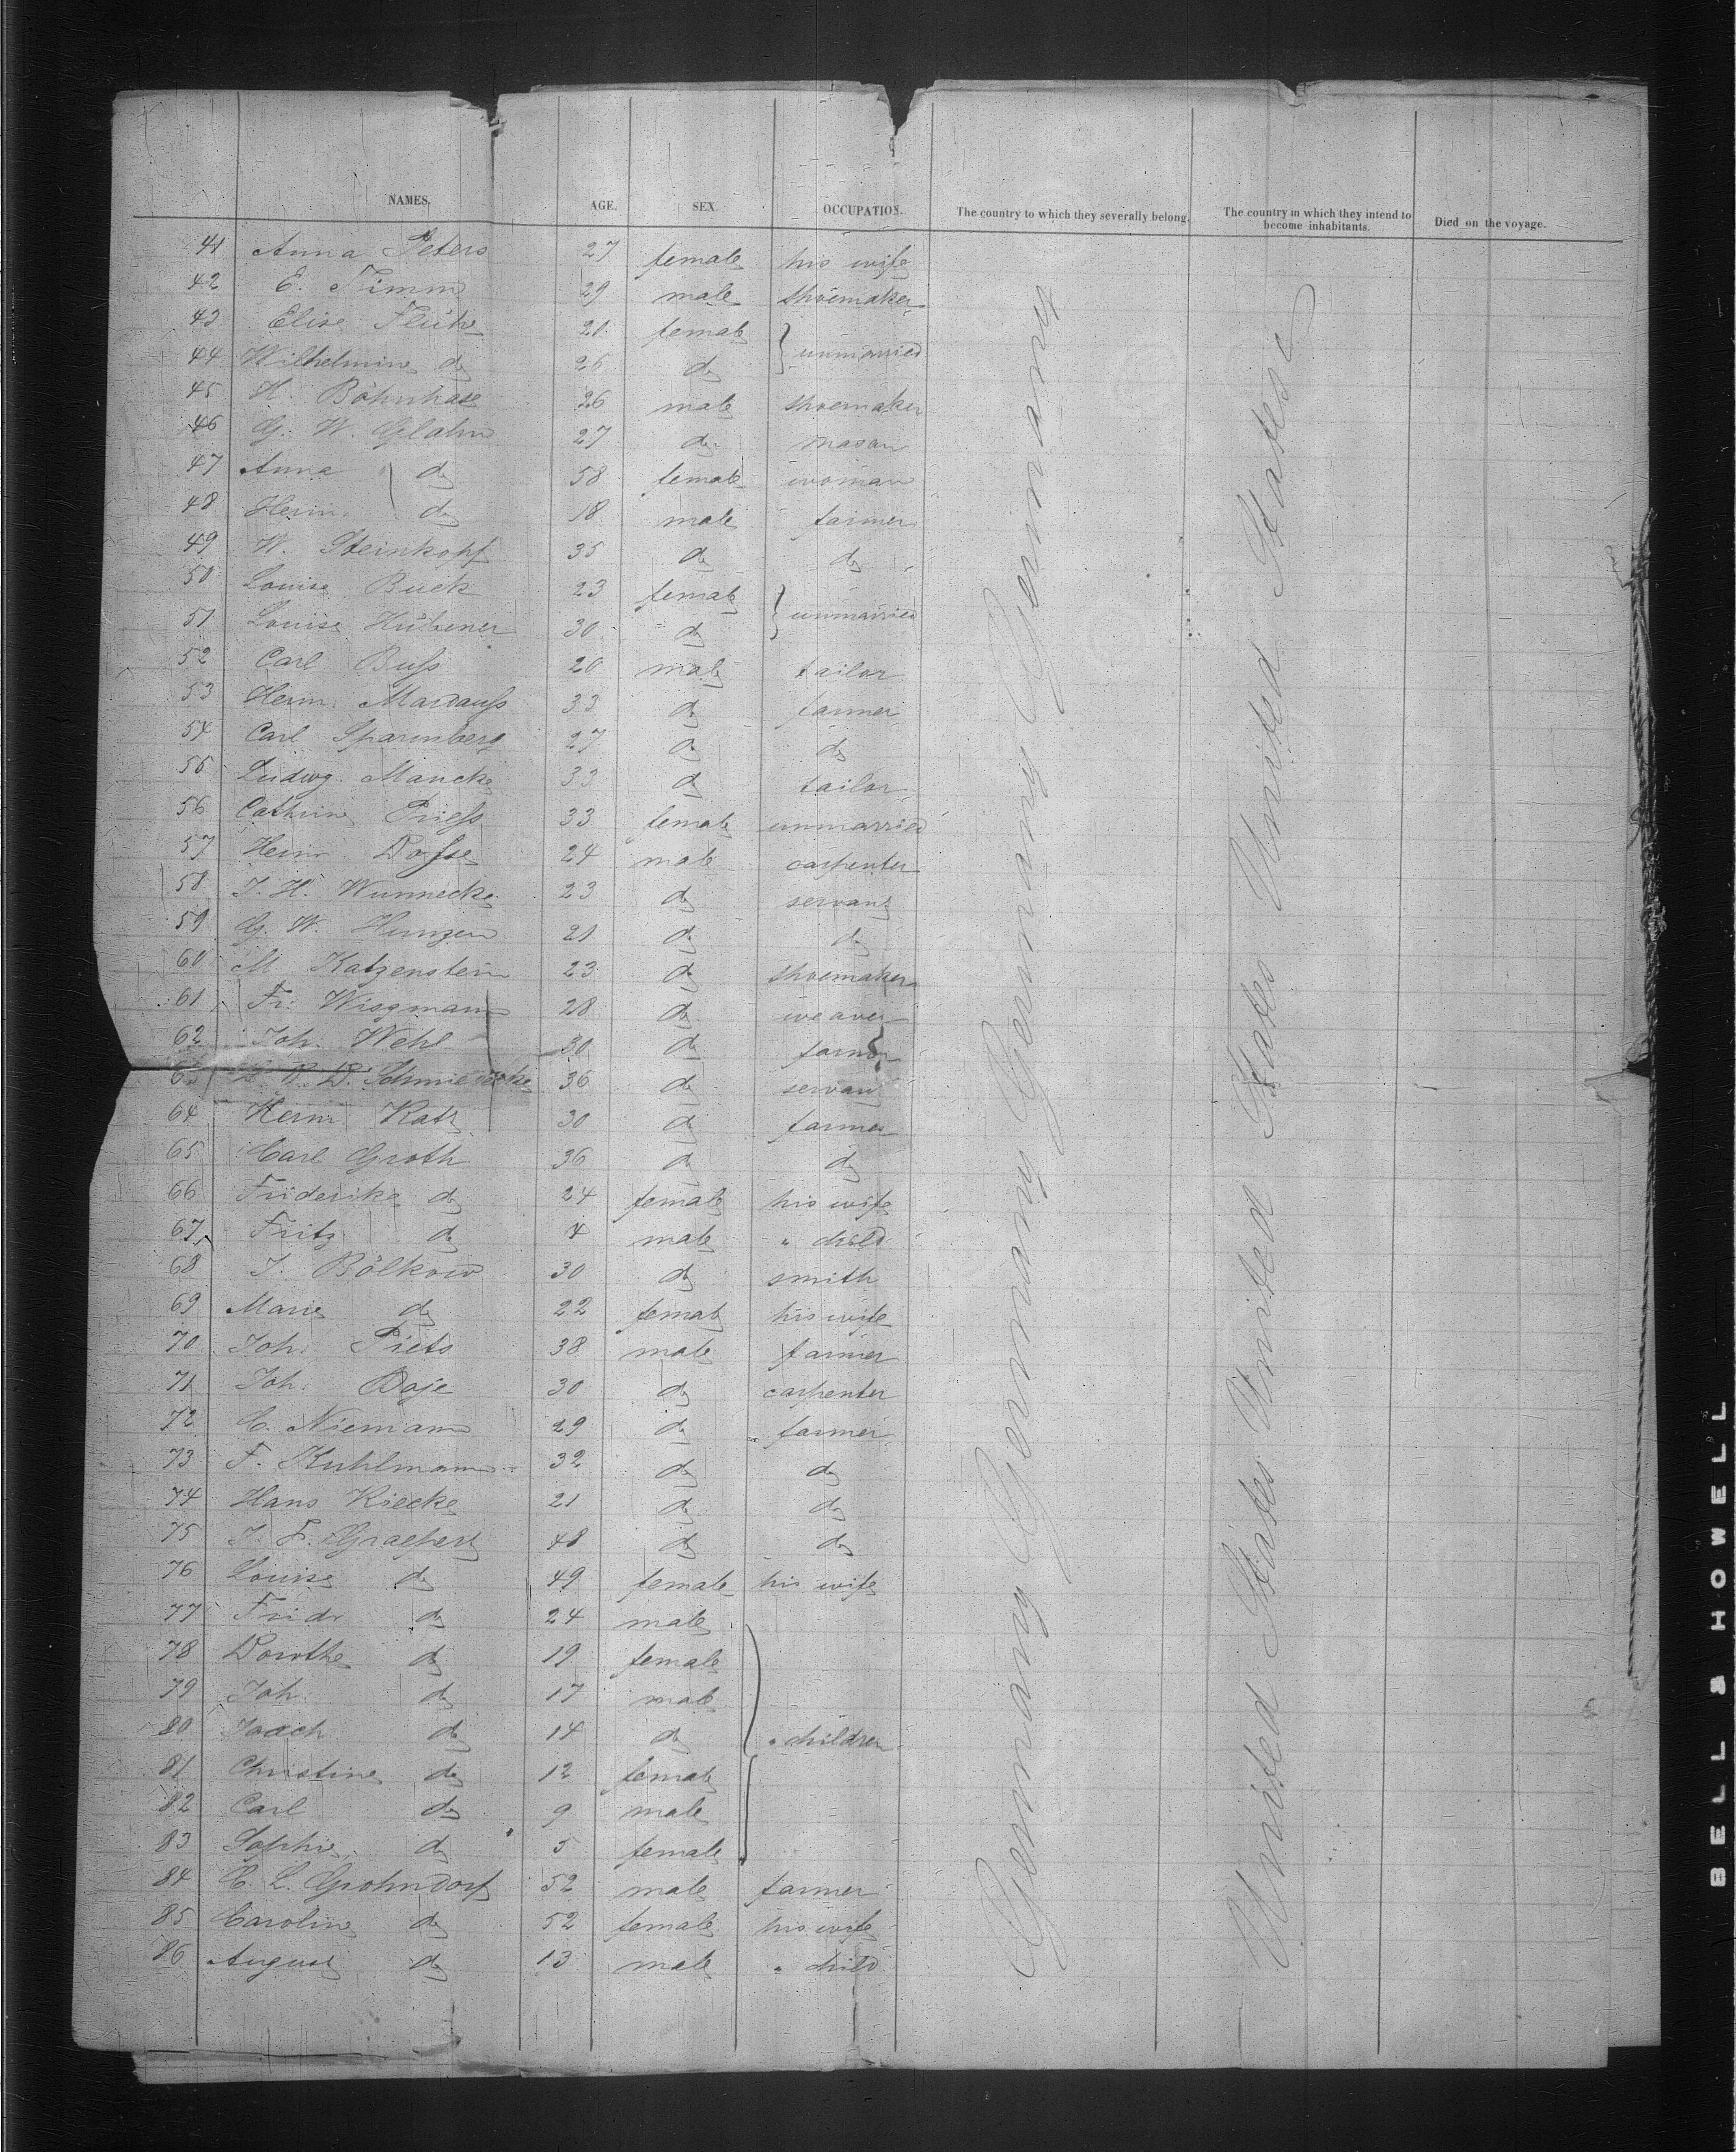 NAMES. AGE. SEX. OCCUPATION. The country to which they severally belong. The country in which they intend to become inhabitants. Died on the voyage.
41 Anna Peters 27 female his wife
42 E. Timm 29 male shoemaker
43 Elise 21 female
unmarried
44 Wilhelmine do 26 do
45 H. Böhnhase 26 male shoemaker
46 G. W. Glahn 27 do mason
47 Anna do 58 female woman
48 Herm. do 18 male farmer
49 W. Steinkopf 35 do do
50 Louise Buck 23 female
unmarried
51 Louise Hübener 30 do
52 Carl Buss 20 male tailor
53 Herm. 33 do farmer
54 Carl Sparenberg 27 do do
55 Ludwg. Mancke 33 do tailor
56 Cathrine Priess 33 female unmarried
57 Heinr Dosse 24 male carpenter
58 J. H. Wunnecke 23 do servant
59 G. W. 21 do do
60 M Katzenstein 23 do shoemaker
61 Fr. Wiegmann 28 do weaver
62 Joh. Wehl 30 do farmer
63 36 do servant
64 Herm Katz 30 do farmer
65 Carl Groth 36 do do
66 Friderike do 24 female his wife
67 Fritz do male " child
68 J. Bölkow 30 do smith
69 Marie do 22 female his wife
70 Joh. Piets 38 male farmer
71 Joh. Boje 30 do carpenter
72 C. Niemann 29 do farmer
73 F. Kuhlmann 32 do do
74 Hans Kiecke 21 do do
75 J. F. Graepert 48 do do
76 Louise do 49 female his wife
77 Fridr do 24 male
78 Dorothe do 19 female
79 Joh. do 17 male
80 Joach do 14 do " children
81 Christine do 12 female
82 Carl do 9 male
83 Sophie do 5 female
84 C. L. Grohndorf 52 male farmer
85 Caroline do 52 female his wife
86 August do 13 male " child
Germany Germany Germany Germany Germany
United States United States United States
BELL & HOWELL